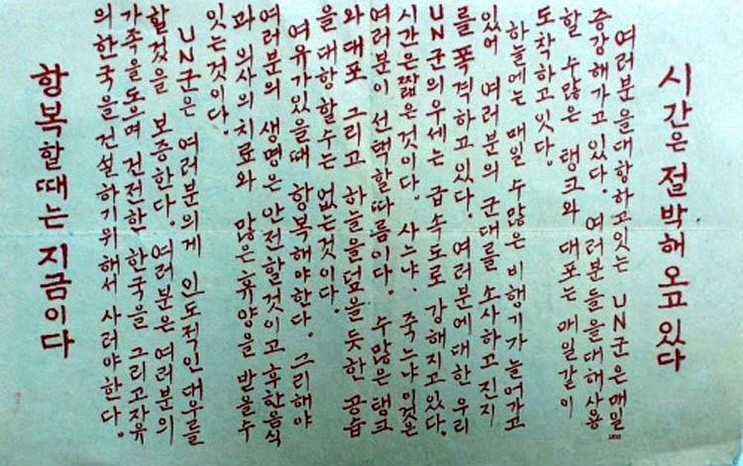 시간은 절박해 오고 있다
여러분을대항하고있는 UN군은매일
증강해가고 있다. 여러분들을대해사용
할 수많은 탱크와 대포는 매일같이
도착하고잇다.
하늘에는 매일 수많은 비행기가 늘어가고
있어 여러분의 군대를 소사하고 진지
를 폭격하고 있다. 여러분에대한 우리
UN군의우세는 급속도로 강해지고있다.
시간은짧은것이다. 사느냐. 죽느냐 이것은
여러분이 선택할따름이다. 수많은탱크
와대포 그리고 하늘을덮을듯한 공습
을대항할수는 없는것이다.
여유가있을때 항복해야한다. 그리해야
여러분의 생명은 안전할것이고 후한음식
과 의사의치료와 많은휴양을 받을수
잇는것이다.
UN군은 여러분의게 인도적인대우를
할것을 보증한다. 여러분은 여러분의
가족을도으며 건전한 한국을 그리고자유
의한국을건설하기위해서 사러야한다.
항복할때는 지금이다